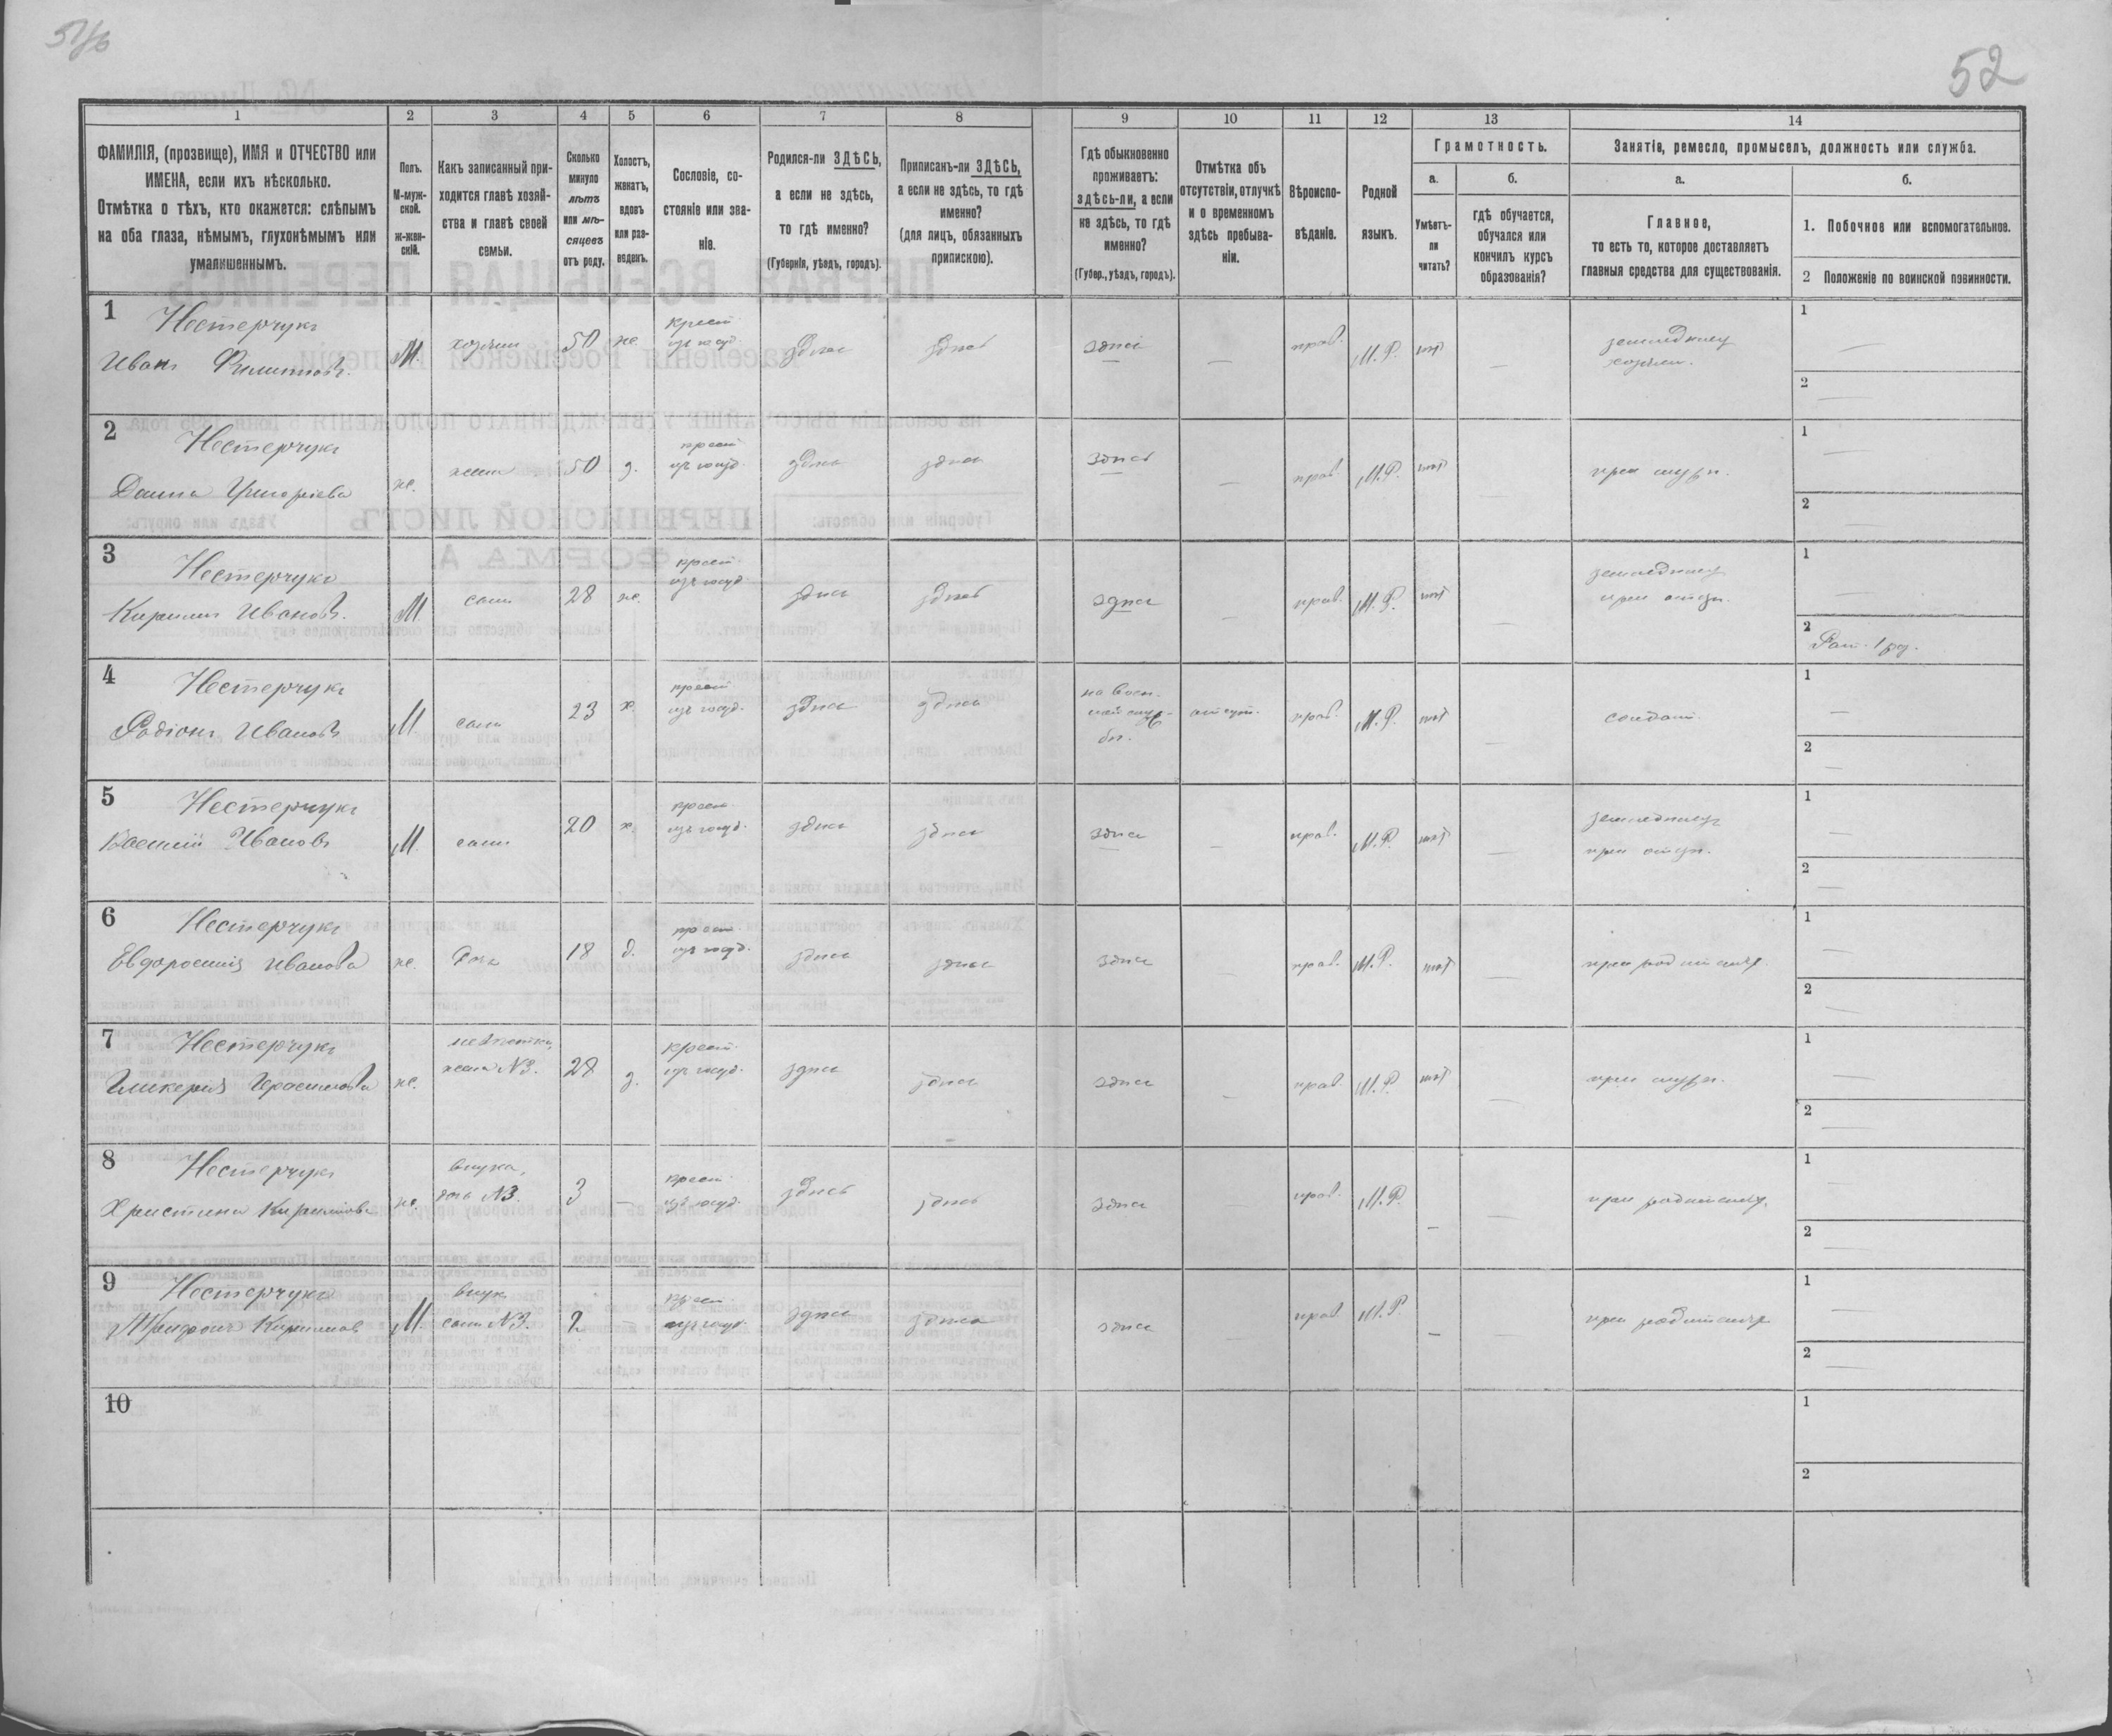 51/6
52
1 2 3 4 5 6 7 8 9 10 11 12 13 14
ФАМИЛІЯ, (прозвище), ИМЯ и ОТЧЕСТВО или
ИМЕНА, если ихъ нѣсколько.
Отмѣтка о тѣхъ, кто окажется: слѣпымъ
на оба глаза, нѣмымъ, глухонѣмымъ или
умалишеннымъ.
Полъ.
М-муж-
ской.
ж-жен-
скій.
Какъ записанный при-
ходится главѣ хозяй-
ства и главѣ своей
семьи.
Сколько
минуло
лѣтъ
или мѣ-
сяцевъ
отъ роду.
Холостъ,
женатъ,
вдовъ
или раз-
веденъ.
Сословіе, со-
стояніе или зва-
ніе.
Родился-ли ЗДѢСЬ,
а если не здѣсь,
то гдѣ именно?
(Губернія, уѣздъ, городъ).
Приписанъ-ли ЗДѢСЬ,
а если не здѣсь, то гдѣ
именно?
(для лицъ, обязанныхъ
припискою).
Гдѣ обыкновенно
проживаетъ:
здѣсь-ли, а если
не здѣсь, то гдѣ
именно?
(Губер., уѣздъ, городъ).
Отмѣтка объ
отсутствіи, отлучкѣ
и о временномъ
здѣсь пребыва-
ніи.
Вѣроиспо-
вѣданіе.
Родной
языкъ.
Грамотность.
а.
Умѣетъ-
ли
читать?
б.
гдѣ обучается,
обучался или
кончилъ курсъ
образованія?
Занятіе, ремесло, промыселъ, должность или служба.
а.
Главное,
то есть то, которое доставляетъ
главныя средства для существованія.
б.
1. Побочное или вспомогательное.
2 Положеніе по воинской повинности.
1 Нестерчукъ
Иванъ Филиповъ. М. хозяин 50 же. крест. изъ госуд. здѣсь здѣсь здѣсь — прав. М.Р. нѣт — земледѣлец хозяин. 1 — 2 —
2 Нестерчукъ
Григоріева же. жена 50 з. крест. изъ госуд. здѣсь здѣсь здѣсь — прав. М.Р. нѣт — при мужѣ. 1 — 2 —
3 Нестерчукъ
Кирилъ Ивановъ. М. сын 28 же. крест. изъ госуд. здѣсь здѣсь здѣсь — прав. М.Р. нѣт — земледѣлец при отцѣ. 1 — 2 Рат. 1 ра.
4 Нестерчукъ
Родіонъ Ивановъ М. сын 23 х. крест. изъ госуд. здѣсь здѣсь на воен- ной служ- бѣ. отсут. прав. М.Р. нѣт — солдат. 1 — 2 —
5 Нестерчукъ
Василій Ивановъ М. сын 20 х. крест. изъ госуд. здѣсь здѣсь здѣсь — прав. М.Р. нѣт — земледѣлец при отцѣ. 1 — 2 —
6 Нестерчукъ
Евфросинія Иванова же. дочь 18 д. крест. изъ госуд. здѣсь здѣсь здѣсь — прав. М.Р. нѣт — при родителях. 1 — 2 —
7 Нестерчукъ
Гликерія Герасимова же. невѣстка, жена N3. 28 з. крест. изъ госуд. здѣсь здѣсь здѣсь — прав. М.Р. нѣт — при мужѣ. 1 — 2 —
8 Нестерчукъ
Христина Кирилова же. внука, дочь N3. 3 — крест. изъ госуд. здѣсь здѣсь здѣсь — прав. М.Р. — — при родителях. 1 — 2 —
9 Нестерчукъ
Трифонъ Кирилов М. внук сын N3. 2 — крест. изъ госуд. здѣсь здѣсь здѣсь — прав. М.Р. — — при родителях 1 — 2 —
10 1 2